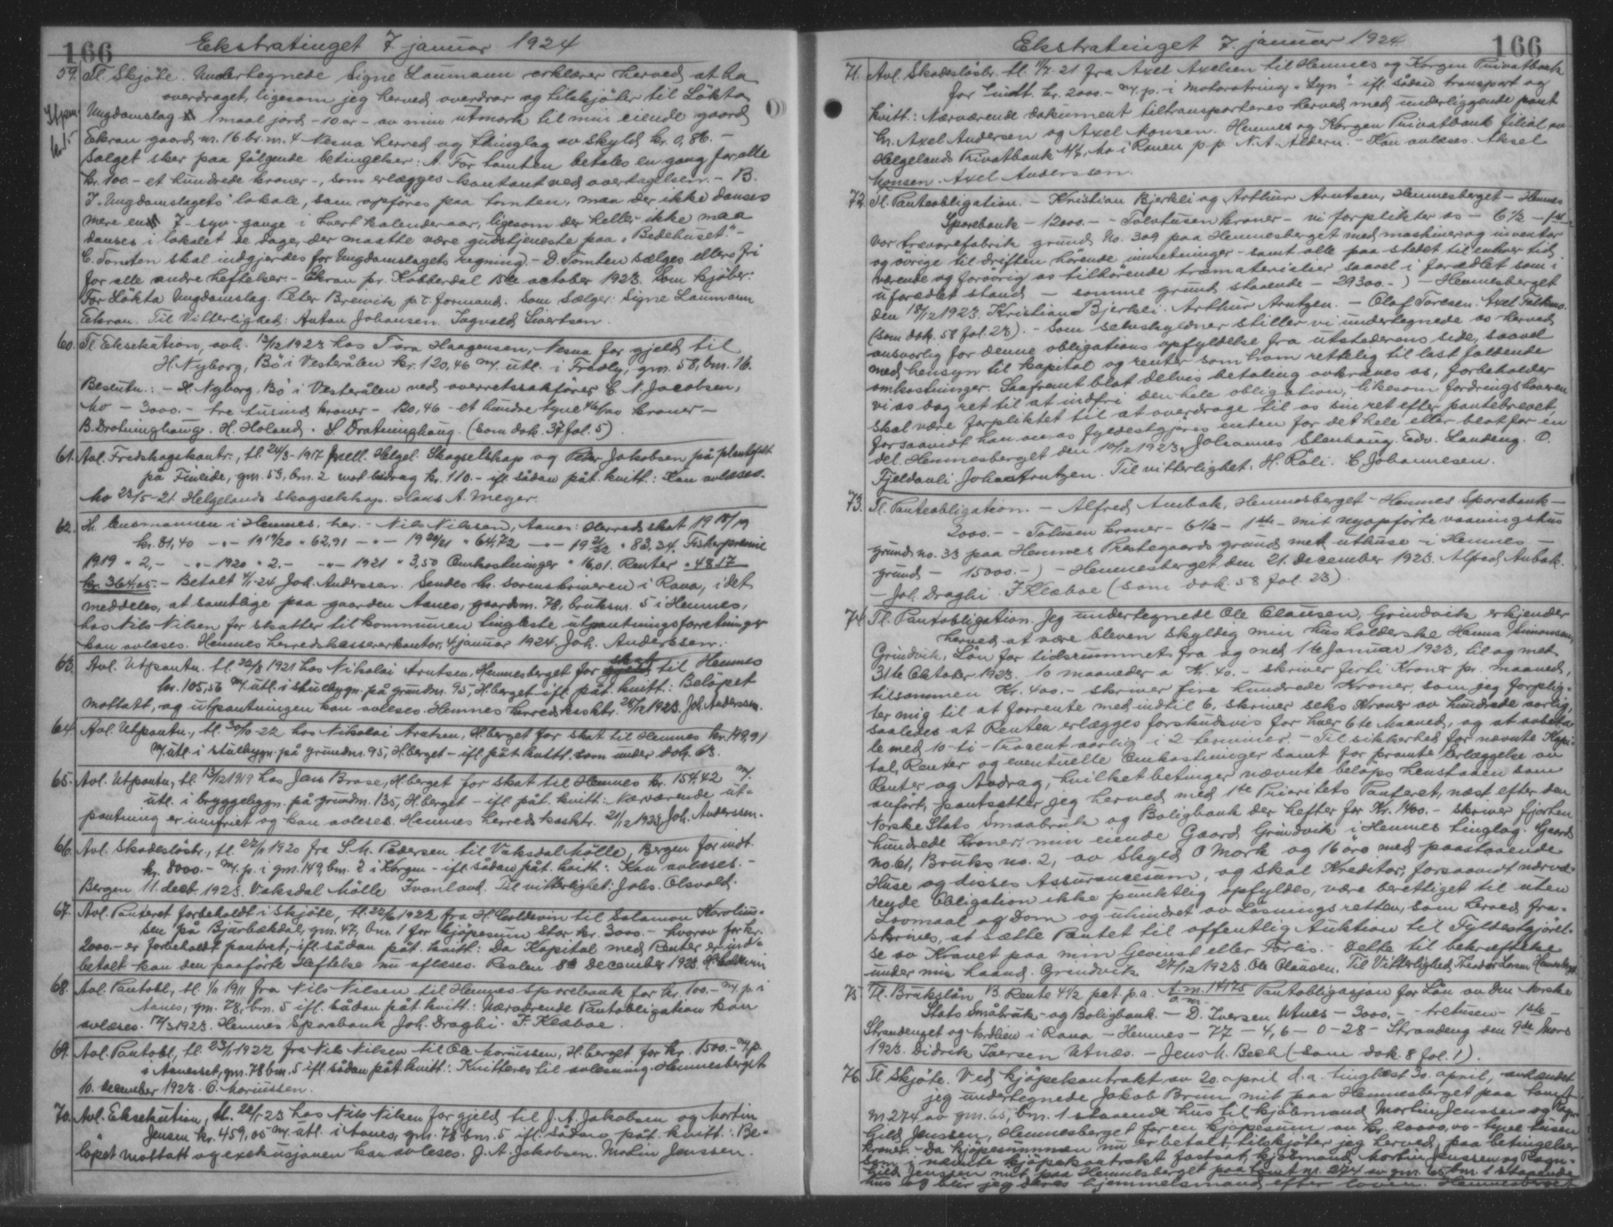 166
Ekstratinget 7. januar 1924
59. Tl. Skjøte. Undertegnede Signe Laumann erklærer herved at ha
overdraget, ligesom jeg herved overdrar og tilskjøter til Løkta
Ungdomslag 1 maal jord - 10 ar - av min utmark til min eiende gaard
Ekran gaards nr. 16 br.nr. 4 Nesna herred og thinglag av skyld kr. 0,86. -
Salget sker paa følgende betingelser: A. For tomten betales en gang for alle
kr. 100 - et hundrede kroner -, som erlægges kontant ved overtagelsen. - B.
I Ungdomslagets lokale, som opføres paa tomten, maa der ikke danses
mere end 7 - syv - gange i hvert kalenderaar, ligesom der heller ikke maa
danses i lokalet de dage, der maatte være gudstjeneste paa "Bedehuset" -
C. Tomten skal indgjerdes for Ungdomslagets regning - D. Tomten sælges ellers fri
for alle andre heftelser - Ekran pr. Kobberdal 15de october 1923. Som kjøber:
For Løkta Ungdomslag Peter Brewik p.t. formand. Som Sælger: Signe Laumann
Ekran. Til Vitterlighet: Anton Johansen. Ingvald Sivertsen.
60. Tl. Eksekution, avh. 13/12 1923 hos Tora Haagensen, Nesna for gjeld til
H. Nyborg, Bø i Vesterålen kr. 120,46 m/ utl. i Frisoly, gnr. 58, bnr. 16.
Beslutn.: - H. Nyborg Bø i Vesterålen ved overretssakfører C. N. Jacobsen,
Mo - 3000. - tre tusind kroner - 120,46 - et hundre tyve 46/100 kroner -
B. Drotninghaug. H. Holand. S. Drotninghaug (som dok. 37 fol. 5).
61. Avl. Fredskogskontr., tl. 24/3-1917 mell. Helgel. Skogselskap og Peter Jakobsen på plantefelt
på Finneide, gnr. 53, bnr. 2 mot bidrag kr. 110. - ifl. sådan påt. kvitt: Kan avlæses.
Mo 23/5-21. Helgelands skogselskap. Hans A. Meyer.
62. Hr. lensmannen i Hemnes. her. - Nils Nilsen, Aanes: Herredsskat 19 18/19
kr. 81,40 -"- 19 19/20 " 62,91 -"- 19 20/21 " 64,72 -"- 19 21/22 " 83,34. Fiskerpremie
1919 " 2,- -"- 1920 " 2.- -"- 1921 " 3,50 Omkostninger " 16,01. Renter " 48,17
kr. 364,05. - Betalt 4/1-24 Joh. Anderssen. Sendes hr. sorenskriveren i Rana, idet
meddeles, at samtlige paa gaarden Aanes, gaardsnr. 78, bruksnr. 5 i Hemnes,
hos Nils Nilsen for skatter til kommunen tinglæste utpantningsforretninger
kan avlæses. Hemnes herredskassererkontor, 4 januar 1924. Joh. Anderssen.
63. Avl. Utpantn. tl. 22/3 1921 hos Nikolai Arntsen, Hemnesberget for skat til Hemnes
kr. 105,56 m/ utl. i stuebygn. på grundnr. 95, H.berget ifl. påt. kvitt: Beløpet
mottatt, og utpantningen kan avlæses Hemnes herredskasktr. 28/12 1923. Joh. Anderssen.
64. Avl. Utpantn., tl. 30/10-22 hos Nikolai Arntsen, H.berget for skat til Hemnes kr. 148,91
m/ utl. i stuebygn. på grundnr. 95, H.berget - ifl. påt. kvitt. som under dok. 63.
65. Avl. Utpantn., tl. 13/12 1919 hos Jens Brose, H.berget for skat til Hemnes kr. 154,42 m/
utl. i bryggebygn. på grundnr. 135, H.berget - ifl. påt. kvitt: Nærværende ut-
pantning er innfriet og kan avlæses. Hemnes herredskasktr. 21/12 1923. Joh. Anderssen.
66. Avl. Skadesløsbr., tl. 22/11 1920 fra S. M. Pedersen til Vaksdal Mølle, Bergen for indt.
kr. 8000. - m/ p. i gnr. 149, bnr. 2 i Korgen - ifl. sådan påt. kvitt: Kan avlæses. -
Bergen 11. decb. 1923. Vaksdal Mølle Ivanland. Til vitterlighet: Johs. Olsvold.
67. Avl. Panteret forbeholdt i Skjøte, tl. 22/6 1922 fra H. Coldevin til Salamon Karolius-
sen på Bjerbækdal, gnr. 47, bnr. 1 for kjøpesum stor kr. 3000. - hvorav for kr.
2000. - er forbeholdt pantret, ifl. sådan påt. kvitt: Da Kapital med Renter er ind-
betalt kan den paaførte Heftelse nu aflæses. Ranten 8de december 1923. H. Coldevin
68. Avl. Pantobl., tl. 1/11 1911 fra Nils Nilsen til Hemnes Sparebank for kr. 100. - m/ p. i
Aanes, gnr. 78, bnr. 5 ifl. sådan påt. kvitt: Nærværende Pantobligation kan
avlæses. 17/12 1923. Hemnes Sparebank Joh. Draghi. F. Klæboe.
69. Avl. Pantobl., tl. 23/1 1922 fra Nils Nilsen til Ole Moriussen, H.berget for kr. 1500. - m/ p.
i Aaneset, gnr. 78 bnr. 5 ifl. sådan påt. kvitt: Kvitteres til avlæsning. Hemnesberget
10. december 1923. O. Moriussen.
70. Avl. Eksekution, tl. 22/1-23 hos Nils Nilsen for gjeld til J. A. Jakobsen og Martin
Jensen kr. 459,05 m/ utl. i Aanes, gnr. 78 bnr. 5 ifl. sådan påt. kvitt: Be-
løpet mottatt og exekusjonen kan avlæses. J. A. Jakobsen. Martin Jenssen.
166
Ekstratinget 7. januar 1924
71. Avl. Skadesløsbr. tl. 1/7-21 fra Axel Axelsen til Hemnes og Korgen Privatbank
for indt. kr. 2000. - m/ p. i Motorstring "Lyn" ifl. sådan transport og
kvitt: Nærværende dokument tiltransporteres herved med underliggende pant
hr. Axel Andersen og Axel Monsen. Hemnes og Korgen Privatbank filial av
Helgelands Privatbank A/S, Mo i Ranen p.p. N. A. Aldern. - Kan avlæses. Aksel
Monsen. Axel Anderssen.
72. Tl. Panteobligation. - Kristian Bjerkli og Arthur Arntsen, Hemnesberget - Hemnes
Sparebank - 12000. - - Tolvtusen kroner - vi forplikter os - 6 1/2 - 1ste -
vor trevarefabrik grund No. 309 paa Hemnesberget med maskiner og inventar
og øvrige til driften hørende innretninger - samt alle paa stedet til enhver tid
værende og forøvrig os tilhørende træmaterialer saavel i forædlet som i
uforædlet stand - samme grund staaende - 29300. -) - Hemnesberget
den 18/12 1923. Kristian Bjerkli. Arthur Arntzen. - Olaf Toresen. Axel Falkmo.
(Som dok. 58 fol. 23). - Som selvskyldner stiller vi undertegnede os herved
ansvarlig for denne obligations opfyldelse fra utstederens side, saavel
med hensyn til kapital og renter som ham rettelig til last faldende
omkostninger. Saafremt blot delvis betaling avkræves os, forbeholder
vi os dog ret til at indfri den hele obligation, likesom fordringshaveren
skal være forpliktet til at overdrage til os sin ret efter pantebrevet,
forsaavidt han av os fyldestgjøres enten for det hele eller blot for en
del. Hemnesberget den 10/12 1923. Johannes Stenhaug. Edv. Landeng. O.
Fjeldavli Johan Arntzen. Til vitterlighet: H. Røli. C. Johannesen.
73. Tl. Panteobligation. - Alfred Anbak, Hemnesberget - Hemnes Sparebank -
2000. - - Totusen kroner - 6 1/2 - 1ste - mit nyopførte vaaningshus
grunds no. 33 paa Hemnes Prestegaards grund med uthuse i Hemnes -
grund - 15000. -) - Hemnesberget den 21. december 1923. Alfred Anbak.
- Joh. Draghi. F. Klæboe (som dok. 58 fol. 23).
74. Tl. Pantobligation. Jeg undertegnede Ole Clausen, Grindvik erkjender
herved at være bleven skyldig min husholderske Hanna Simonsen,
Grindvik, Løn for tidsrummet fra og med 1ste Januar 1923, til og med
31te Oktober 1923. 10 maaneder a Kr. 40. - skriver førti Kroner pr. maaned,
tilsammen Kr. 400. - skriver fire hundrede Kroner, som jeg forplig-
ter mig til at forrente med indtil 6, skriver seks Kroner av hundrede aarlig,
saaledes at Renten erlægges forskudsvis for hver 6te Maaned, og at avbeta-
le med 10-ti - Procent aarlig i 2 terminer. - Til sikkerhed for nævnte Kapi-
tal, Renter og eventuelle Omkostninger samt for promte Erlæggelse av
Renter og Avdrag, hvilket betinger nævnte beløps henstaaen som
anført, pantsætter jeg herved med 1ste Prioritets Panteret, næst efter den
Norske Stats Smaabruk og Boligbank der hefter for Kr. 1400. - skriver fjorten
hundrede Kroner, min eiende Gaard Grindvik i Hemnes tinglag. Gaards
no. 61, Bruks no. 2, av Skyld 0 Mark og 16 øre med paastaaende
Huse og disses Assurancesum, og skal Kreditor, forsaavidt nærvæ-
rende Obligation ikke punktlig opfyldes, være berettiget til uten
Lovmaal og dom og uhindret av Løsningsretten, som herved fra-
skrives, at sætte Pantet til offentlig Auktion til Fyldestgjørel-
se av Kravet paa min Gevinst eller Forlis. - Dette til bekræftelse
under min haand. Grindvik 27/12 1923. Ole Clausen. Til Vitterlighed, Theodor Larsen Hemnesberget
75. Tl. Brukslån B. Rente 4 1/2 pct. p.a. A.m. 14175 Pantobligasjon for Lån av Den Norske
Stats Småbruk- og Boligbank - D. Iversen Utnes - 3000. - - tretusen - 1ste -
Strandenget og Nordlien i Rana - Hemnes - 77 - 4,6 - 0 - 28 - Strandeng den 9de Mars
1923. Didrik Iversen Utnes. - Jens M. Bech (som dok. 8 fol. 1).
76. Tl. Skjøte. Ved kjøpekontrakt av 20. april d. a. tinglæst 30. april, avhendet
jeg undertegnede Jakob Bruun mit paa Hemnesberget paa tomt
nr. 274 av gnr. 65, bnr. 1 staaende hus til kjøbmand Martin Jenssen og Ragn-
hild Jenssen, Hemnesberget for en kjøpesum av kr. 20000,00 - tyve tusen
kroner. - Da kjøpesummen nu er betalt tilskjøter jeg herved paa betingelser
som i nævnte kjøpekontrakt fastsat, kjøbmand Martin Jenssen og Ragn-
hild Jenssen mit paa Hemnesberget paa tomt nr. 274 av gnr. 65, bnr. 1 staaende
hus og blir jeg deres hjemmelsmand efter loven. Hemnesberget